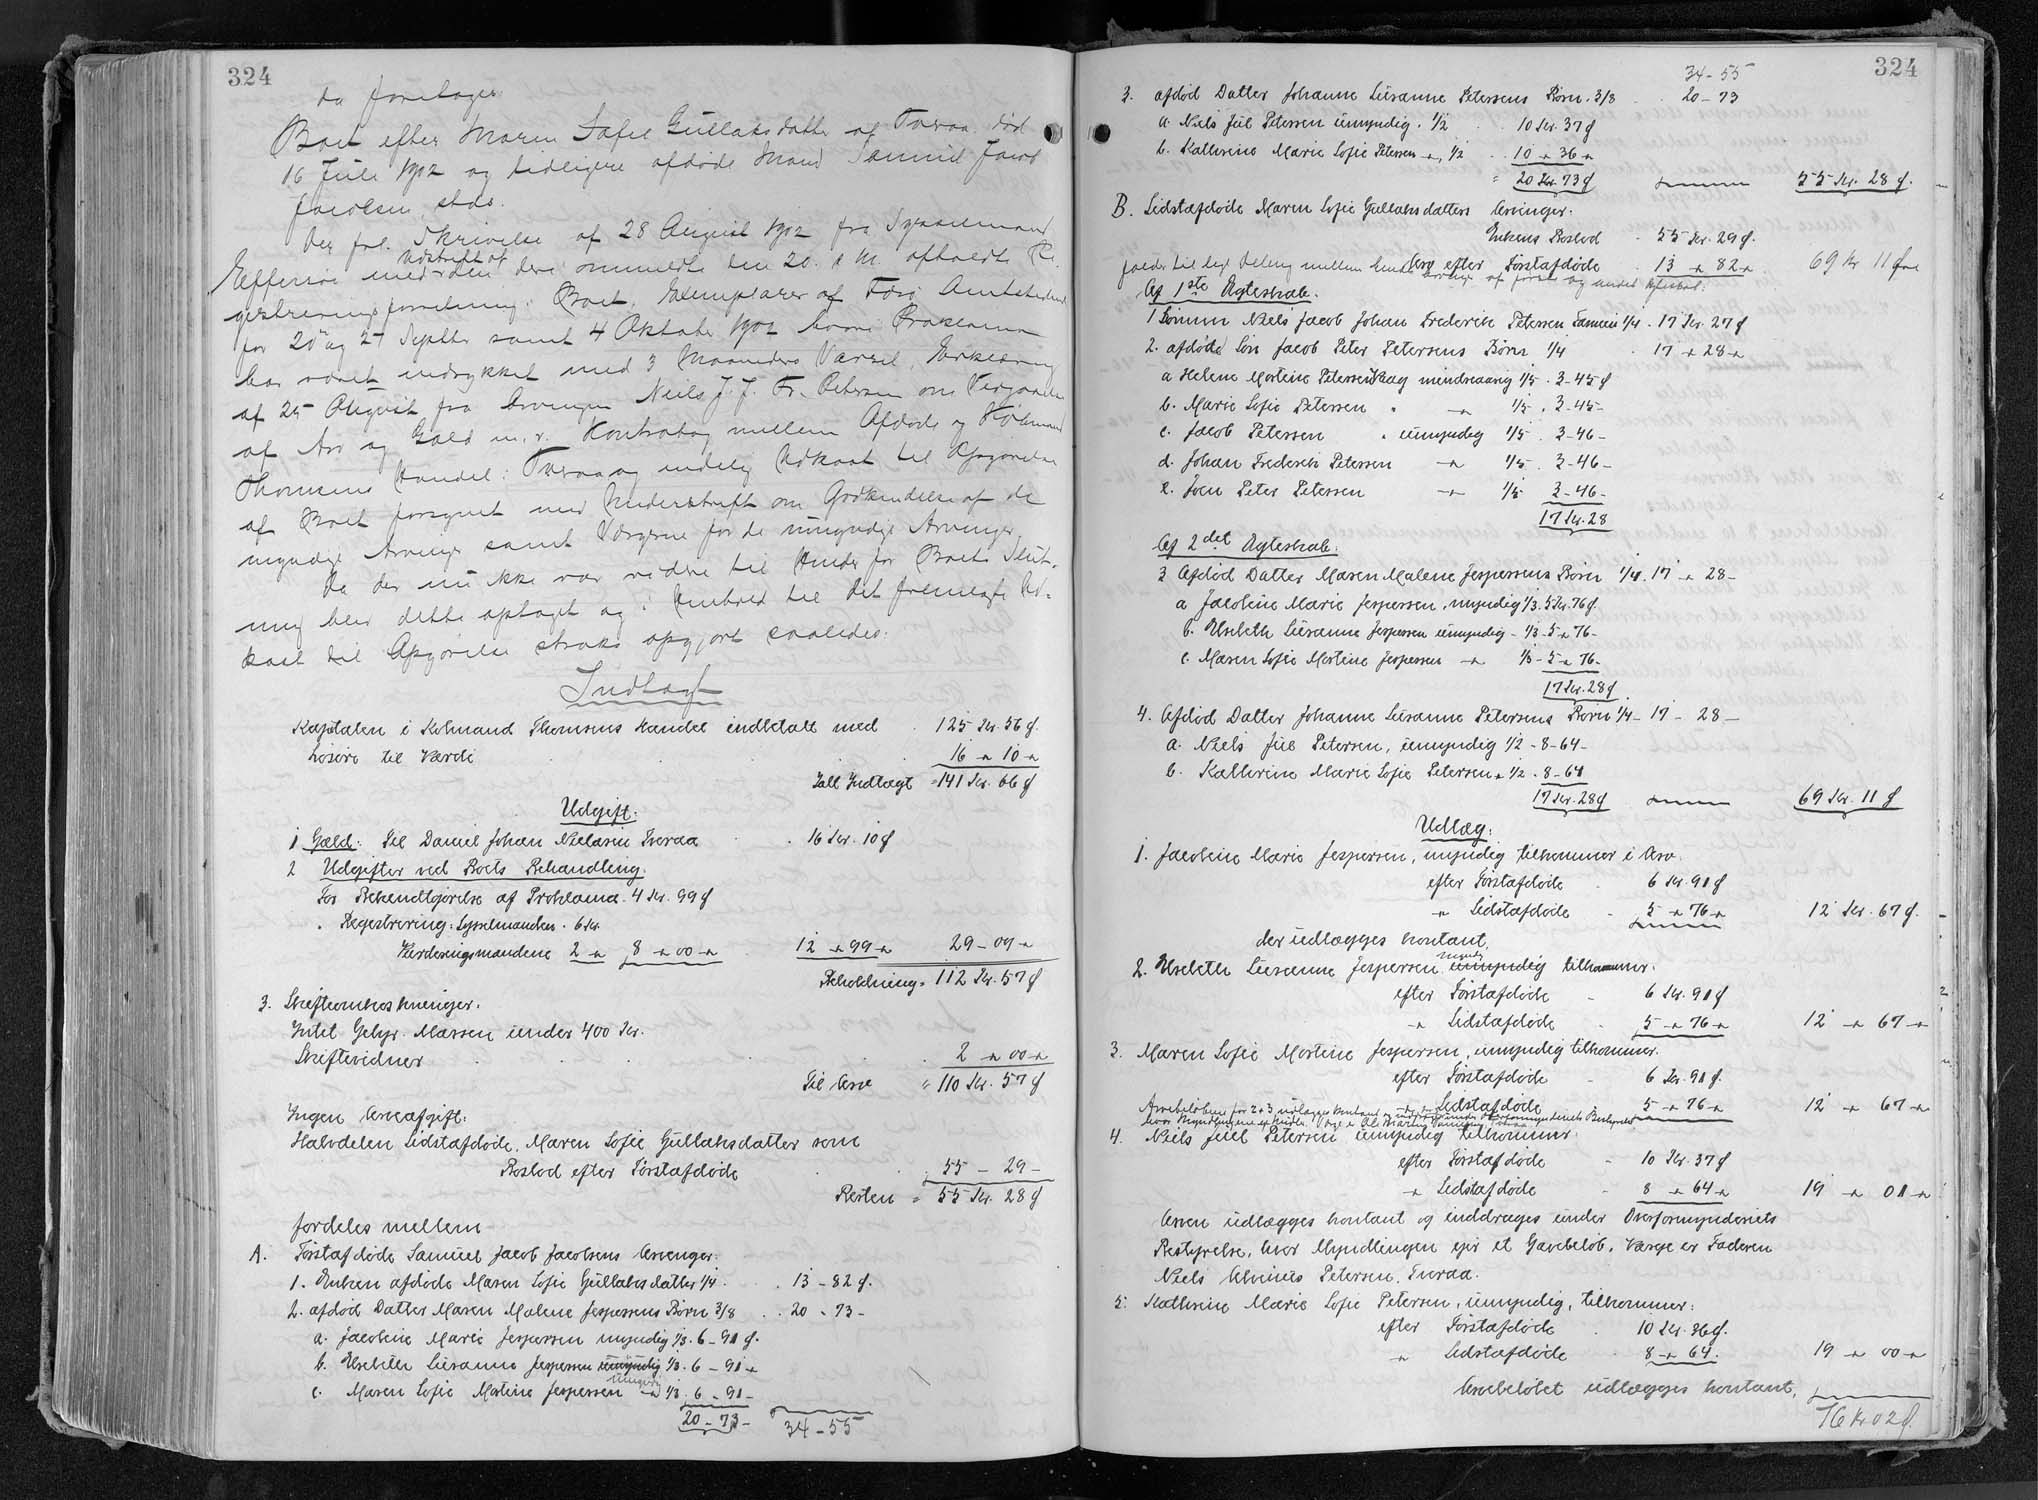 324
da foretoges
Boet efter Maren Sofie Gullaksdatter af Tveraa, død
16 Juli 1902 og tidligere afdøde Mand Samuel Jacob
Jacobsen stds.
Der frl. Skrivelse af 28 August 1902 fra Sysselmand
Effersøe med Udskrift af den dere ommeldte den 20. s. M. afholdte Re-
gistreringsforretning i Boet, Exemplarer af Færø Amtstidende
for 20 og 27 Septbr samt 4 Oktobr 1902 hvori Proklama
har været indrykket med 3 Maaneders Varsel, Erklæring
af 25 August fra Arvingen Niels J. J. Fr. Petersen om Vedgaaelse
af Arv og Gæld m. v. Kontrabog mellem Afdøde og Købmand
Thomsens Handel i Tveraa og endelig Udkast til Opgørelse
af Boet forsynet med Underskrift om Godkendelse af de
myndige Arvinger samt Værgerne for de umyndige Arvinger
Da der nu ikke var videre til Hinder for Boets Slut-
ning blev dette optaget og i Henhold til det fremlagte Ud-
kast til Opgørelse straks opgjort saaledes:
Indtægt
Kapitalen i Købmand Thomsens Handel indbetalt med 125 Kr. 56 Ø.
Løsøre til Værdi 16 " 10 "
Ialt Indtægt = 141 Kr. 66 Ø
Udgift:
1 Gæld: Til Daniel Johan Nielsen Tveraa 16 Kr. 10 Ø
2 Udgifter ved Boets Behandling.
For Bekendtgjørelse af Proklama. 4 Kr. 99 Ø
" Registrering: Sysselmanden. 6 Kr.
Vurderingsmændene 2 " 8 " 00 " 12 " 99 " 29 - 09 "
Beholdning = 112 Kr. 57 Ø
3. Skifteomkostninger.
Intet Gebyr. Massen under 400 Kr.
Skiftevidner 2 " 00 "
Til Arv = 110 Kr. 57 Ø
Ingen Arveafgift:
Halvdelen Sidstafdøde, Maren Sofie Gullaksdatter som
Boslod efter Førstafdøde 55 - 29 -
Resten = 55 Kr. 28 Ø
fordeles mellem
A. Førstafdøde Samuel Jacob Jacobsens Arvinger:
1. Enken afdøde Maren Sofie Gullaksdatter 1/4. 13 - 82 Ø.
2. afdød Datter Maren Malene Jespersens Børn 3/8 20 - 73 -
a. Jacobine Marie Jespersen myndig 1/3. 6 - 91 Ø.
b. Elsebeth Susanne Jespersen umyndig 1/3. 6 - 91 "
umyndig
c. Maren Sofie Mortine Jespersen " 1/3. 6 - 91 -
20 - 73 - 34 - 55
324
34 - 55
3. afdød Datter Johanne Susanne Petersens Børn. 3/8 20 - 73
a. Niels Juel Petersen umyndig. 1/2 10 Kr. 37 Ø
b. Kathrine Marie Sofie Petersen " 1/2 10 " 36 "
= 20 Kr. 73 Ø 55 Kr. 28 Ø.
B. Sidstafdøde Maren Sofie Gullaksdatters Arvinger:
Enkens Boslod 55 Kr. 29 Ø.
Arv efter Førstafdøde 13 " 82 " 69 Kr 11 Øre
falder til lige Deling mellem hendes Arvinger af første og andet Ægteskab:
Af 1ste Ægteskab.
1 Sønnen Niels Jacob Johan Frederik Petersen Famien 1/4. 17 Kr. 27 Ø
2. afdøde Søn Jacob Peter Petersens Børn 1/4 17 " 28 "
a Helene Mortine Petersen Vaag mindreaarig 1/5. 3 - 45 Ø
b. Marie Sofie Petersen " " 1/5. 3 - 45 -
c. Jacob Petersen " umyndig 1/5. 3 - 46 -
d. Johan Frederik Petersen " 1/5. 3 - 46 -
e. Joen Peter Petersen " 1/5 3 - 46 -
17 Kr. 28
Af 2det Ægteskab:
3 Afdød Datter Maren Malene Jespersens Børn 1/4. 17 " 28 -
a Jacobine Marie Jespersen, myndig 1/3. 5 Kr. 76 Ø.
b. Elsebeth Susanne Jespersen umyndig - 1/3 - 5 " 76 -
c. Maren Sofie Mortine Jespersen " 1/3 - 5 " 76 -
17 Kr. 28 Ø.
4. Afdød Datter Johanne Susanne Petersens Børn 1/4 - 17 - 28 -
a. Niels Juel Petersen, umyndig 1/2 - 8 - 64 -
b. Kathrine Marie Sofie Petersen " 1/2 - 8 - 64
17 Kr. 28 Ø 69 Kr. 11 Ø
Udlæg:
1. Jacobine Marie Jespersen, myndig tilkommer i Arv.
efter Førstafdøde 6 Kr. 91 Ø
" Sidstafdøde 5 " 76 " 12 Kr. 67 Ø.
der udlægges kontant.
2. Elsebeth Susanne Jespersen umyndig tilkommer.
myndig
efter Førstafdøde 6 Kr. 91 Ø
" Sidstafdøde 5 " 76 " 12 " 67 "
3. Maren Sofie Mortine Jespersen, umyndig tilkommer.
efter Førstafdøde 6 Kr. 91 Ø.
" Sidstafdøde 5 " 76 " 12 " 67 "
Arvebeløbene for 2 + 3 udlægges kontant og inddrages under Overformynderiets Bestyrelse
4. Niels Juel Petersen umyndig tilkommer:
efter Førstafdøde 10 Kr. 37 Ø
" Sidstafdøde 8 " 64 " 19 " 01 "
Arven udlægges kontant og inddrages under Overformynderiets
Bestyrelse, hvor Myndlingen ejer et Gavebeløb. Værge er Faderen
Niels Petersen, Tveraa.
5. Kathrine Marie Sofie Petersen, umyndig, tilkommer:
efter Førstafdøde 10 Kr. 36 Ø.
" Sidstafdøde 8 " 64. 19 " 00 "
Arvebeløbet udlægges kontant.
76 Kr 02 Ø.